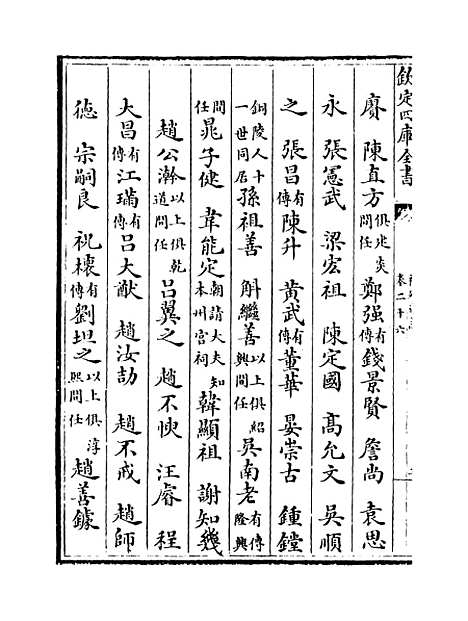 欽定四庫全書
卷二十六
賡 陳直方俱建炎間任 鄭强有傳 錢景賢 詹尚 袁思
永 張憲武 梁宏祖 陳定國 高允文 吳順
之 張昌有傳 陳升 黄武有傳 董華 晏崇古 鍾鏜
銅陵人十一世同居 孫祖善 斛繼善以上俱紹興間任 吳南老有傳隆興
間任 晁子健 韋能定朝請大夫知本州宫祠 韓顯祖 謝知幾
趙公澣以上俱乾道間任 吕翼之 趙不悷 汪睿 程
大昌有傳 江璊有傳 吕大猷 趙汝劼 趙不戒 趙師
徳 宗嗣良 祝櫰有傳 劉坦之以上俱淳熙間任 趙善鐻